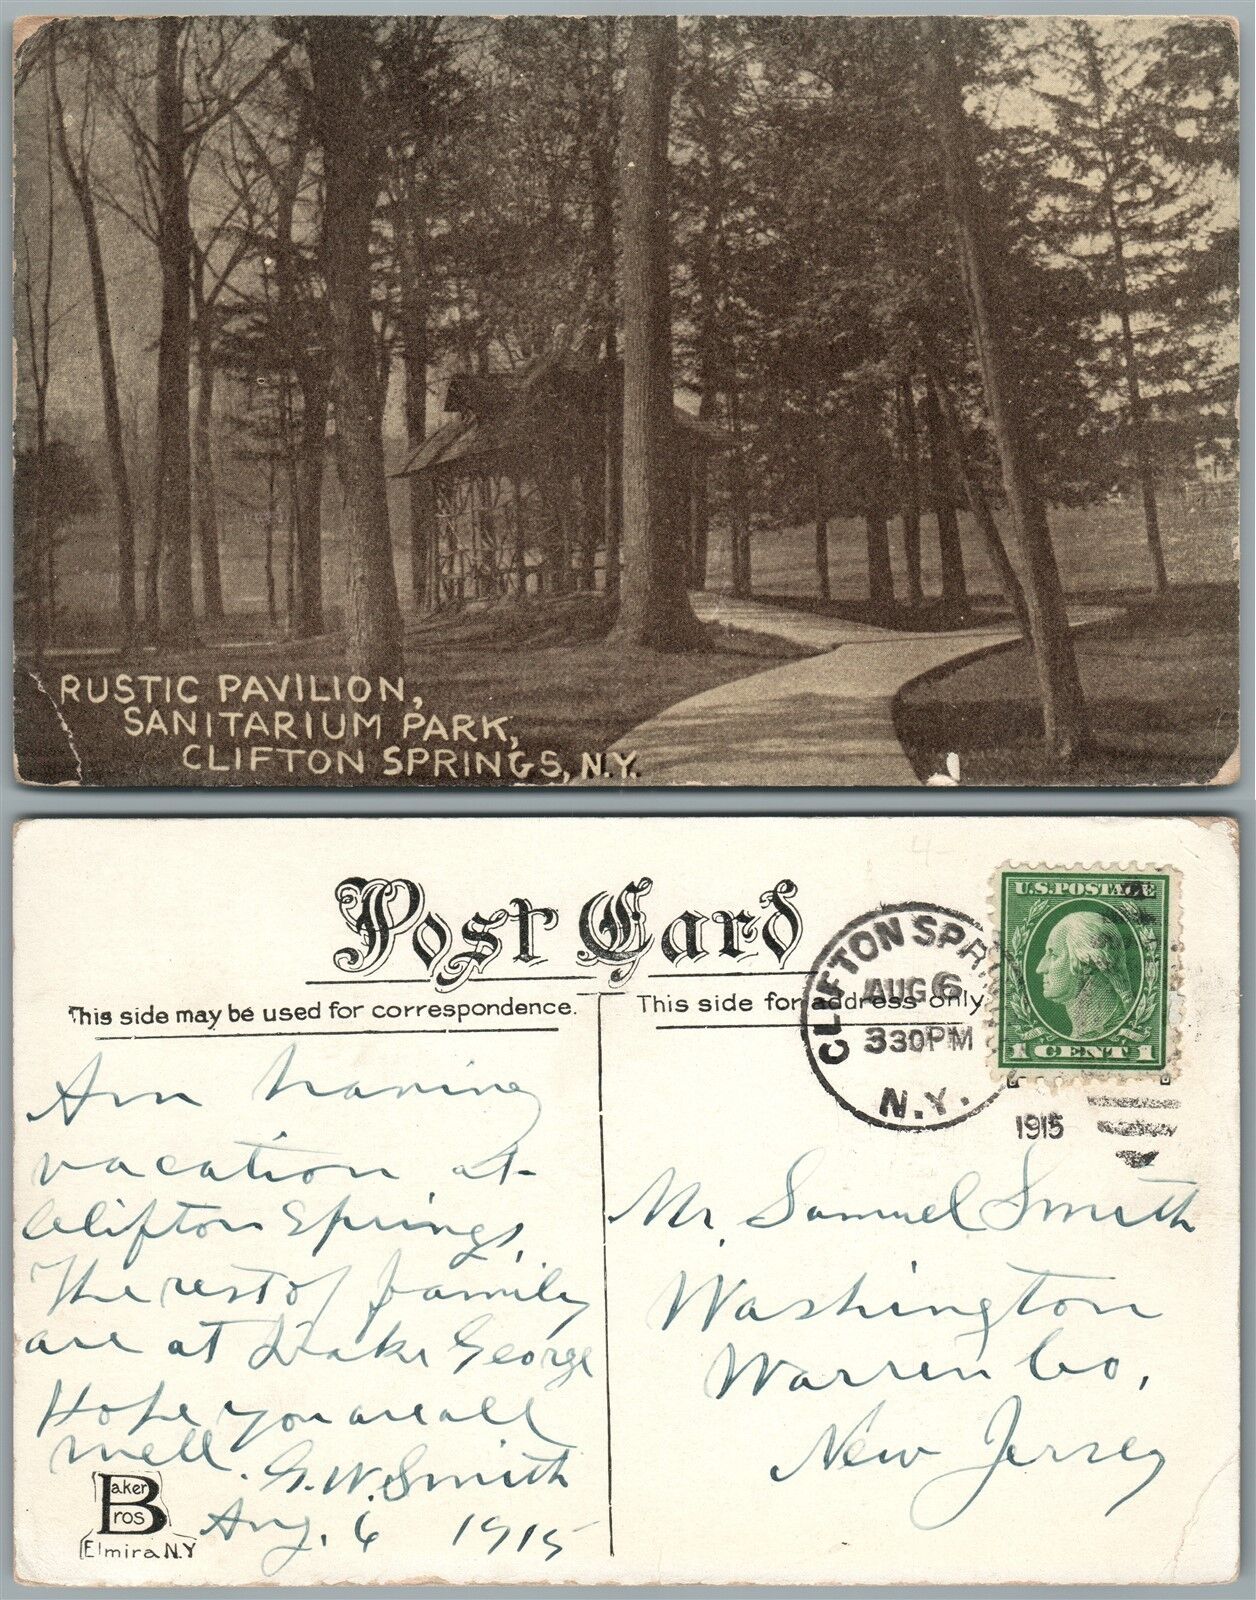 RUSTIC PAVILION,
SANITARIUM PARK,
CLIFTON SPRINGS, N.Y.
Post Card
This side may be used for correspondence.
This side for address only
CLIFTON SPRI
AUG 6
330PM
N.Y.
1915
U.S. POSTAGE
1 CENT 1
Am having
vacation at
Clifton Springs.
The rest of family
are at Lake George
Hope you are all
well. G. W. Smith
Aug. 6 1915
Mr. Samuel Smith
Washington
Warren Co,
New Jersey
Baker
Bros
Elmira N.Y